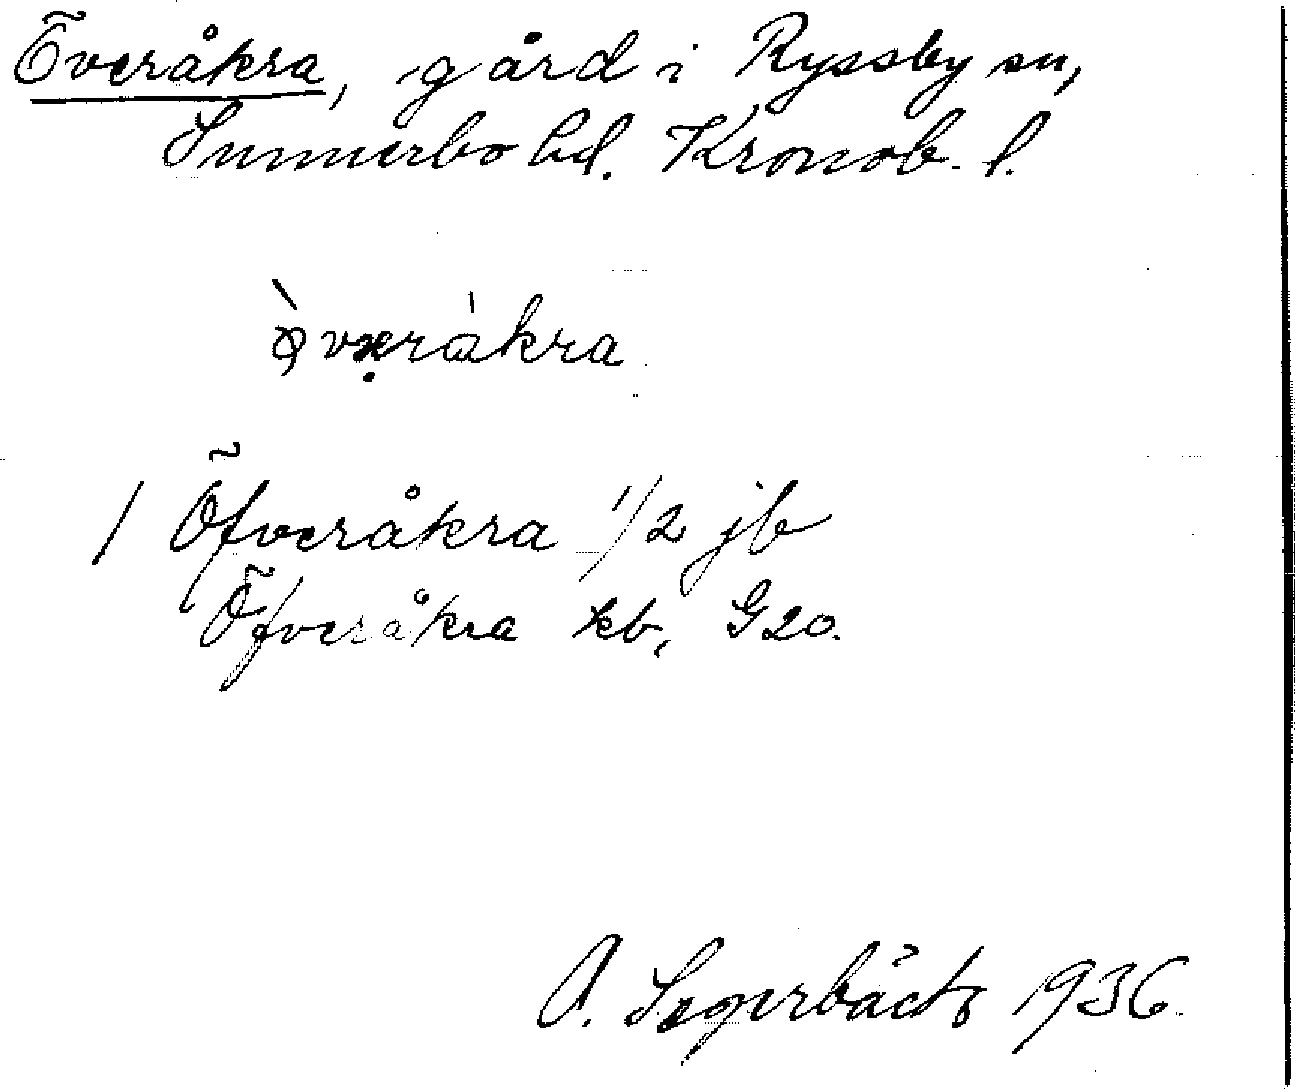 Överåkra, gård i Ryssby sn,
Sunnerbo hd. Kronob. l.
1 Öfveråkra 1/2 jb
Öfveråkra kb, G20.
A. Segerbäck 1936.